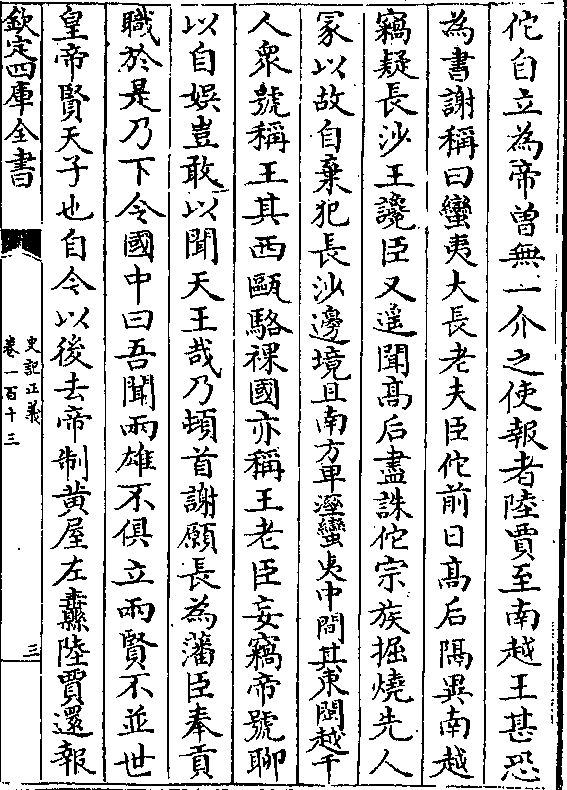 佗自立為帝曾無一介之使報者陸賈至南越王甚恐
為書謝稱曰蠻夷大長老夫臣佗前日髙后隔異南越
竊疑長沙王讒臣又遥聞髙后盡誅佗宗族掘燒先人
冢以故自棄犯長沙邊境且南方卑溼蠻夷中間其東閩越千
人衆號稱王其西甌駱裸國亦稱王老臣妄竊帝號聊
以自娛豈敢以聞天王哉乃頓首謝願長為藩臣奉貢
職於是乃下令國中曰吾聞兩雄不俱立兩賢不並世
皇帝賢天子也自今以後去帝制黄屋左纛陸賈還報
欽定四庫全書
史記正義
卷一百十三
三